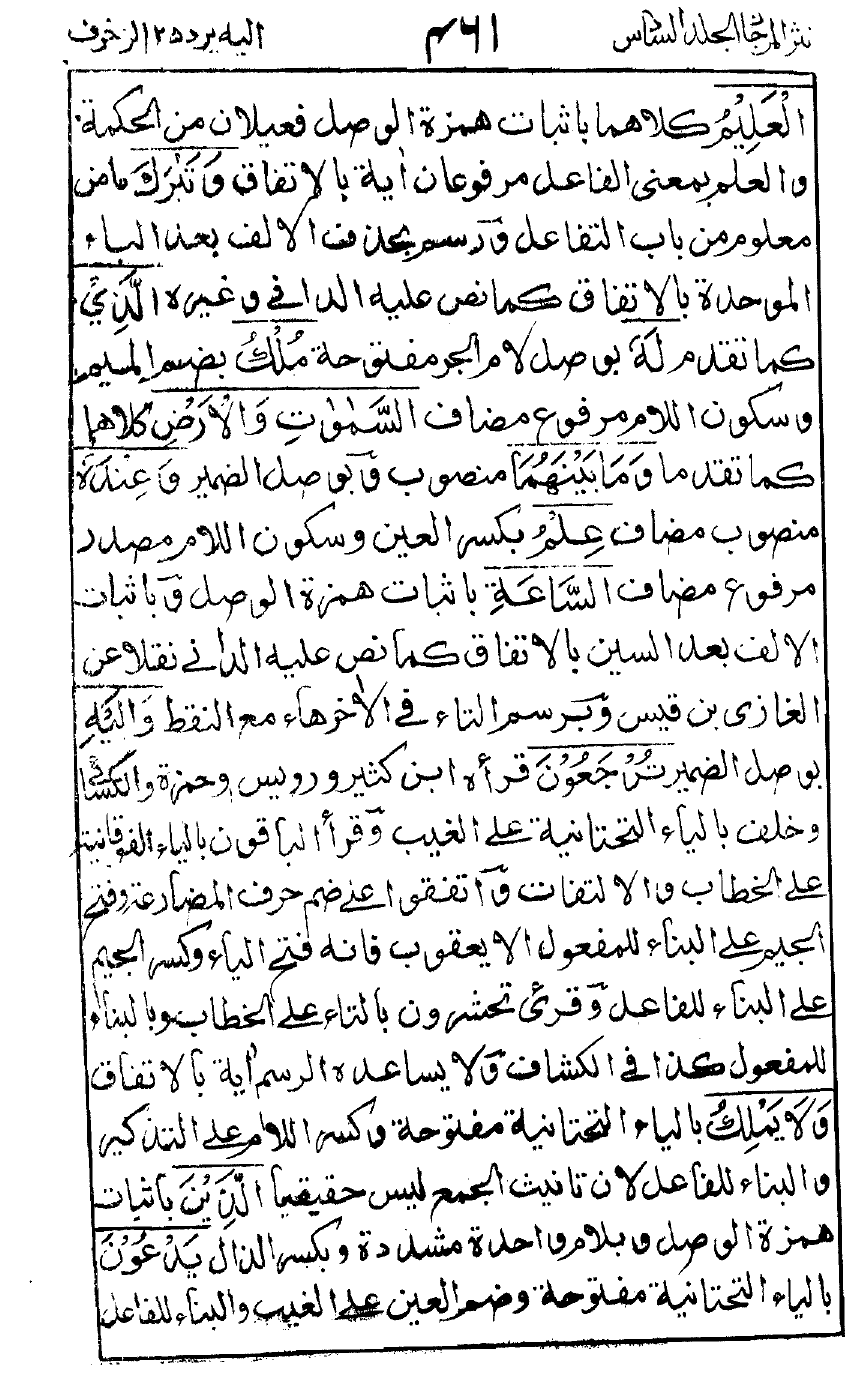 نثر المرجان الجلد السادس ۴۶۱ اليه يرد ۲۵ الزخرف
الْعَلِيْمُ كلاهما باثبات همزة الوصل فعيلان من الحكمة
والعلم بمعنى الفاعل مرفوعان اٰية بالاتفاق وَتَبٰرَكَ ماض
معلوم من باب التفاعل وٓ رسم بحذف الالف بعد الباء
الموحدة بالاتفاق كما نص عليه الدانى وغيره الَّذِيْ
كما تقدم لَهٗ بوصل لام الجر مفتوحة مُلْكُ بضم الميم
وسكون اللام مرفوع مضاف السَّمٰوٰتِ وَالْاَرْضِ كلاهما
كما تقدما وَمَا بَيْنَهُمَا منصوب وٓ بوصل الضمير وَعِنْدَهٗ
منصوب مضاف عِلْمُ بكسر العين وسكون اللام مصدر
مرفوع مضاف السَّاعَةِ باثبات همزة الوصل وٓ باثبات
الالف بعد السين بالاتفاق كما نص عليه الدانى نقلا عن
الغازى بن قيس وٓ برسم التاء فى الاٰخر هاء مع النقط وَاِلَيْهِ
بوصل الضمير تُرْجَعُوْنَ قرأه ابن كثير ورويس وحمزة والكسائى
وخلف بالياء التحتانية على الغيب وٓ قرأ الباقون بالياء الفوقانية
على الخطاب والالتفات وٓ اتفقوا على ضم حرف المضارعة وفتح
الجيم على البناء للمفعول الا يعقوب فانه فتح الياء وكسر الجيم
على البناء للفاعل وٓ قرئ تحشرون بالتاء على الخطاب وبالبناء
للمفعول كذا فى الكشاف وٓلا يساعده الرسم اٰية بالاتفاق
وَلَا يَمْلِكُ بالياء التحتانية مفتوحة وكسر اللام على التذكير
والبناء للفاعل لان تانيث الجمع ليس حقيقيا الَّذِيْنَ باثبات
همزة الوصل وبلام واحدة مشددة وبكسر الذال يَدْعُوْنَ
بالياء التحتانية مفتوحة وضم العين على الغيب والبناء للفاعل